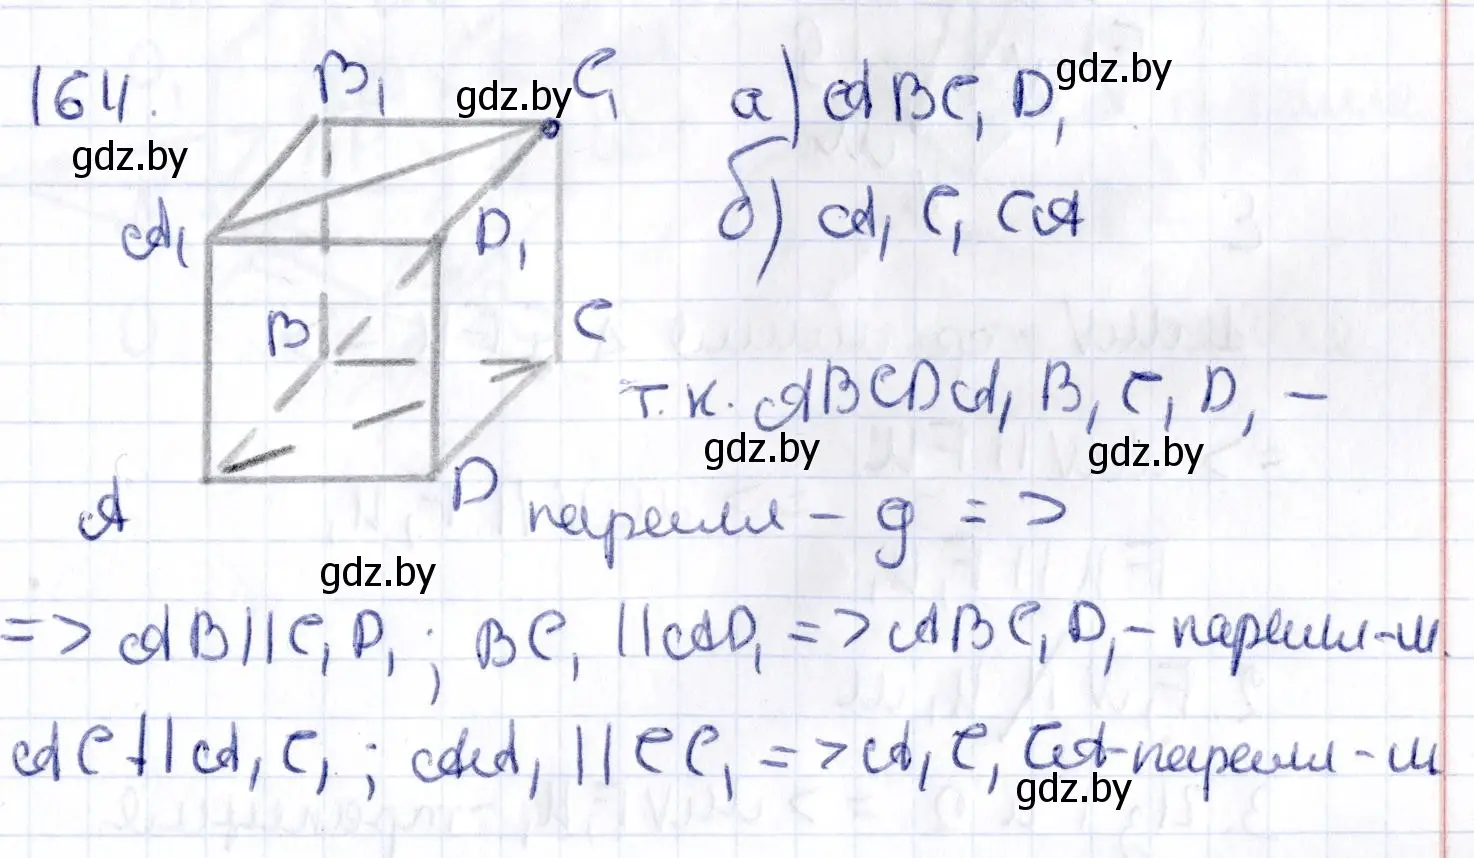 164.
B₁ C₁
A₁ D₁
B C
A D
gdz.by
gdz.by
gdz.by
а) ABC₁D₁
б) A₁C₁CA
gdz.by
т.к. ABCDA₁B₁C₁D₁ –
gdz.by gdz.by
паралл – д =>
gdz.by
=> AB||C₁D₁; BC₁||AD₁ => ABC₁D₁ – паралл-м.
AC||A₁C₁; AA₁||CC₁ => A₁C₁CA-паралл-м
gdz.by